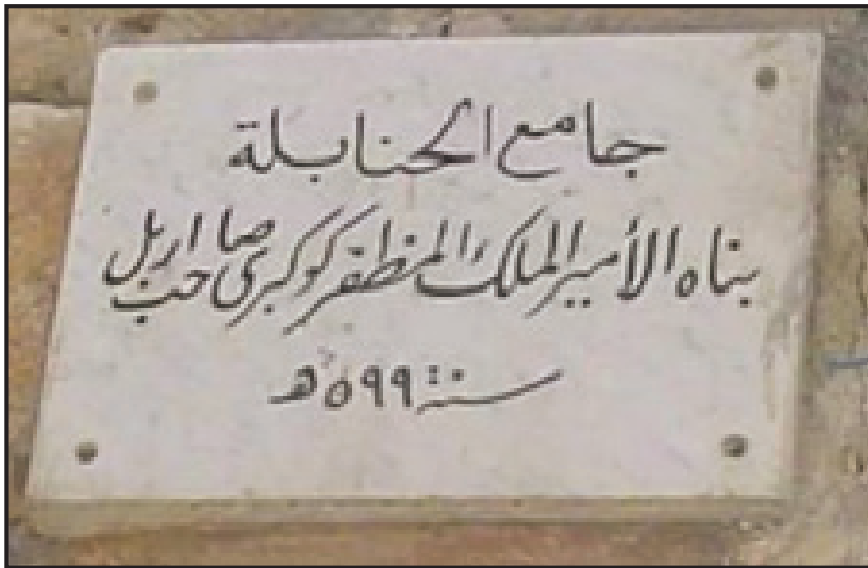 جامع الحنابلة
بناه الأمير الملك المظفر كوكبرى صاحب اربل
سنة ٥٩٩ هـ